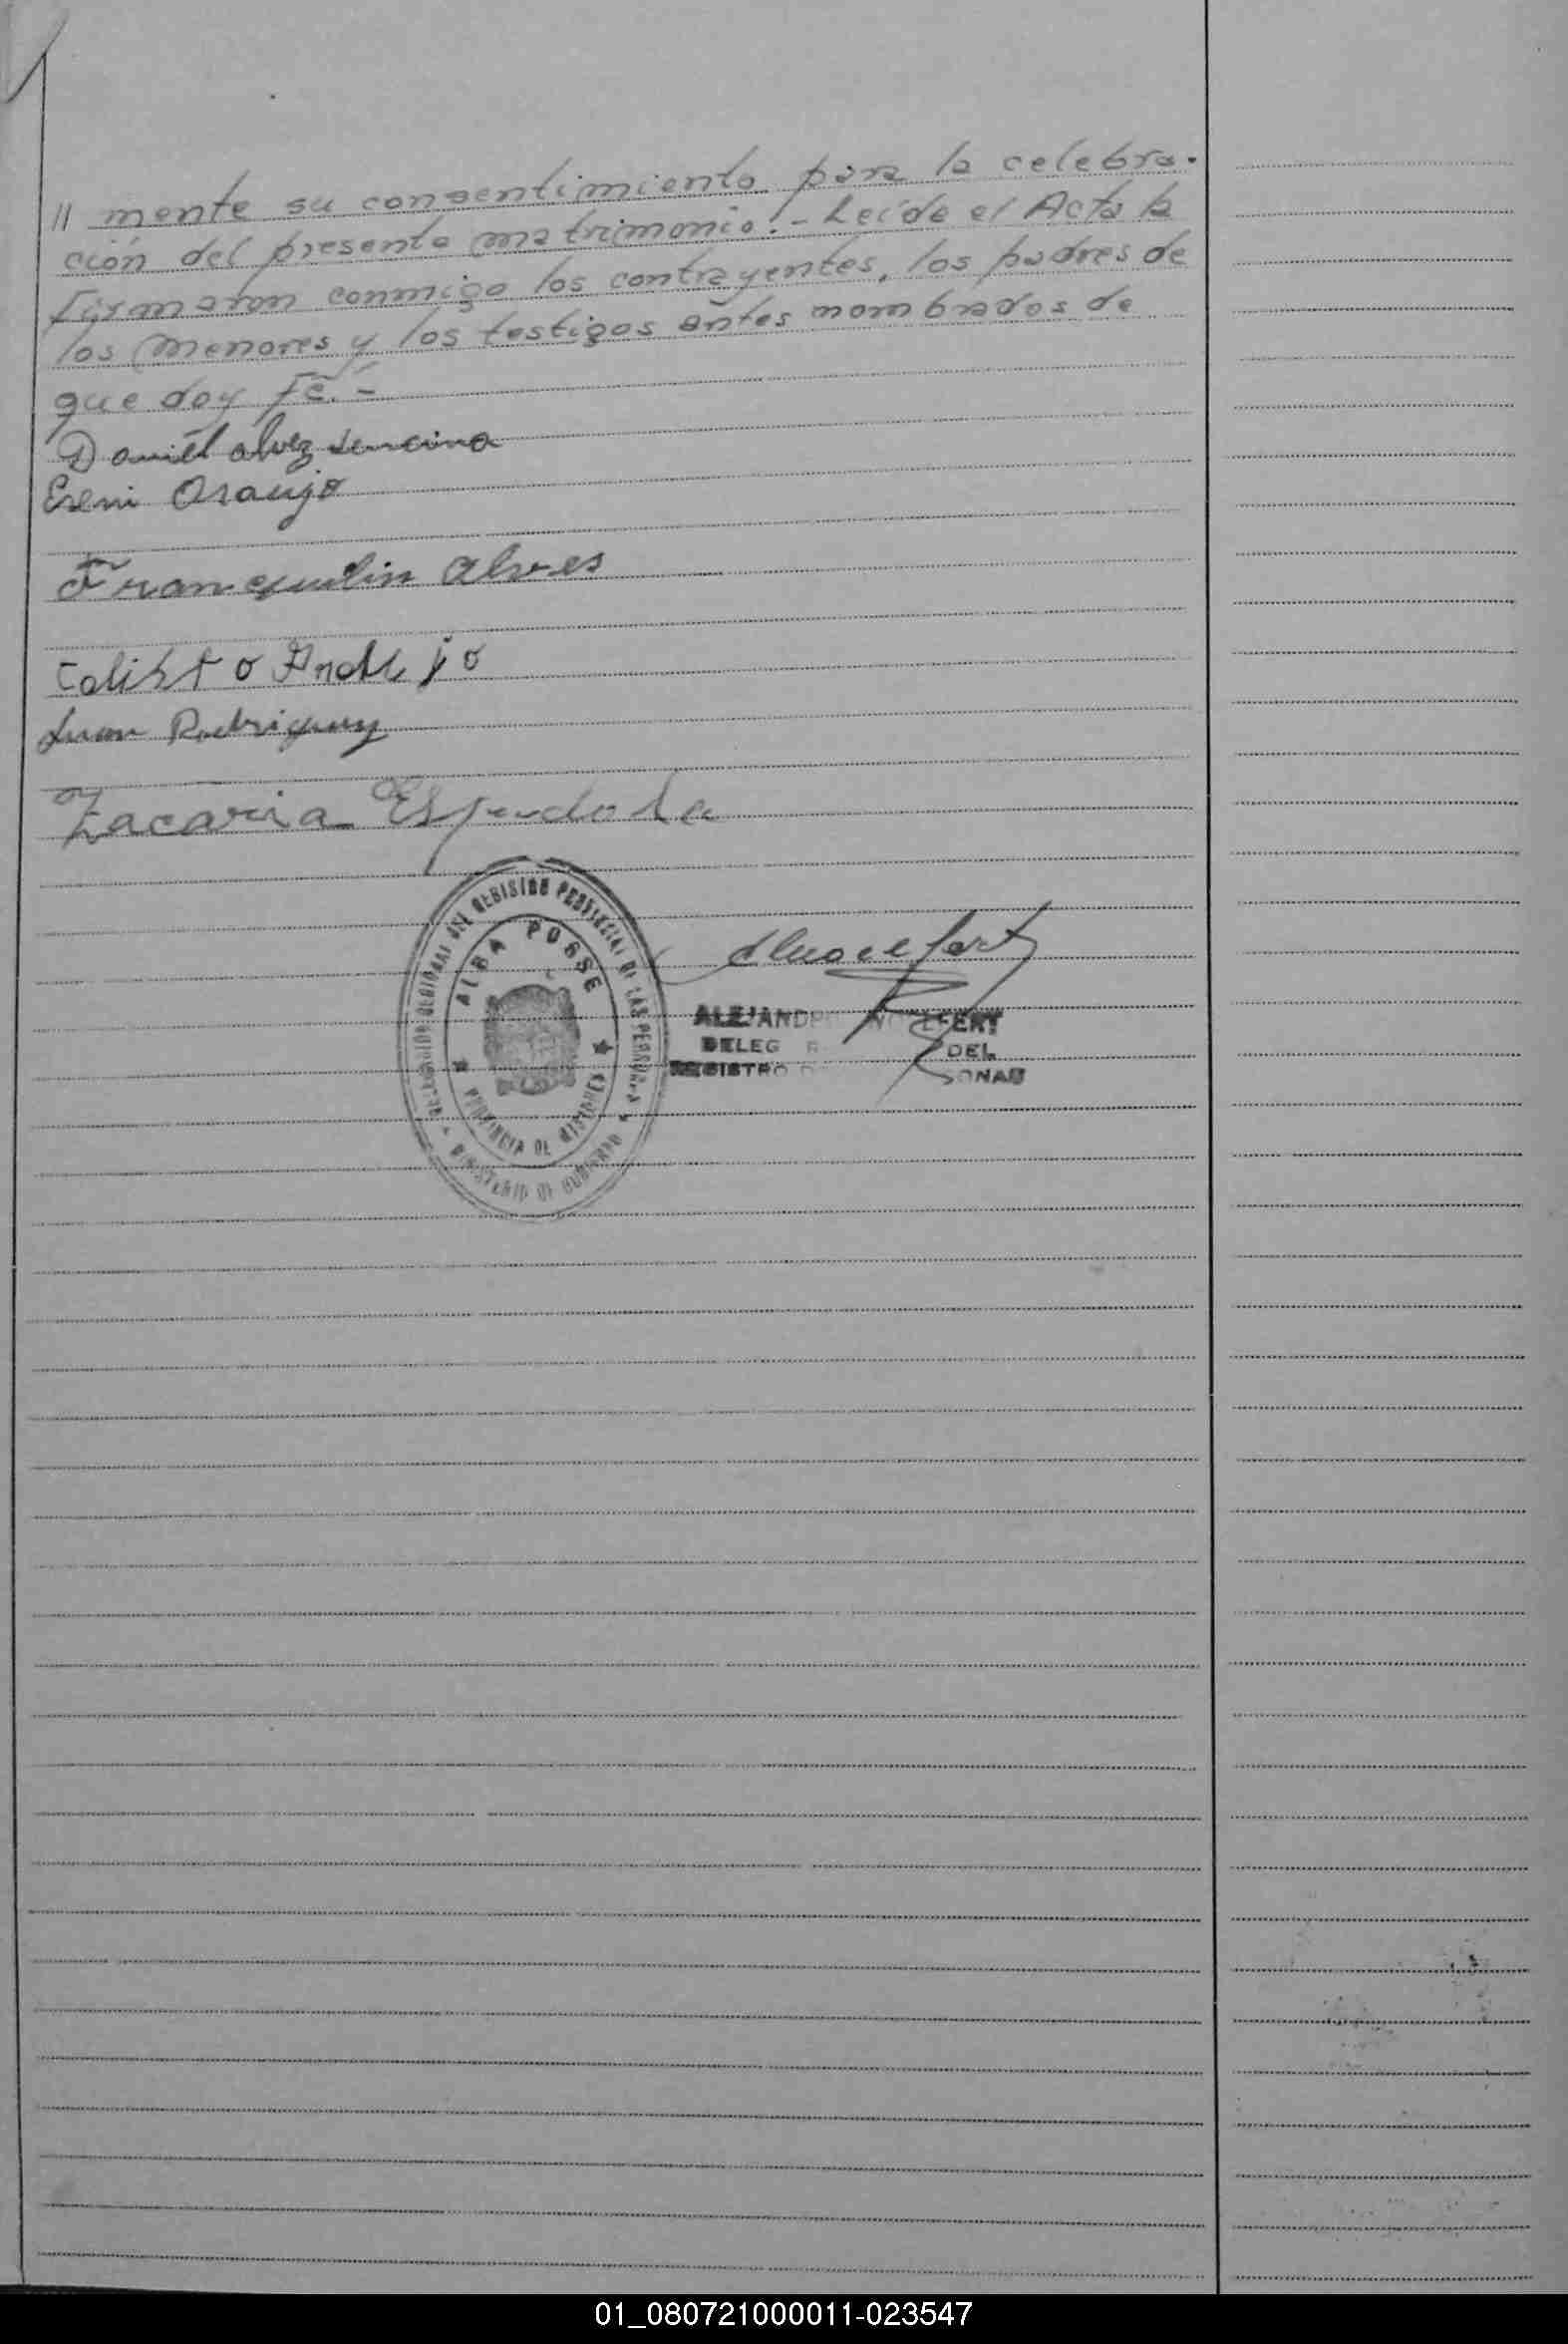 // mente su consentimiento para la celebra-
ción del presente matrimonio.- Leída el Acta la
firmaron conmigo los contrayentes, los padres de
los menores y los testigos antes nombrados de
que doy fé.-
Daniel alvez Lencina
Ereni Araujo
Franquilin Alves
Calisto
Juan Rodriguez
Zacaria Espindola
DELEGACION REGIONAL DEL REGISTRO PROVINCIAL DE LAS PERSONAS
ALBA POSSE
PROVINCIA DE MISIONES
MINISTERIO DE GOBIERNO
ALEJANDR
DELEG DEL
REGISTRO D SONAS
01_080721000011-023547